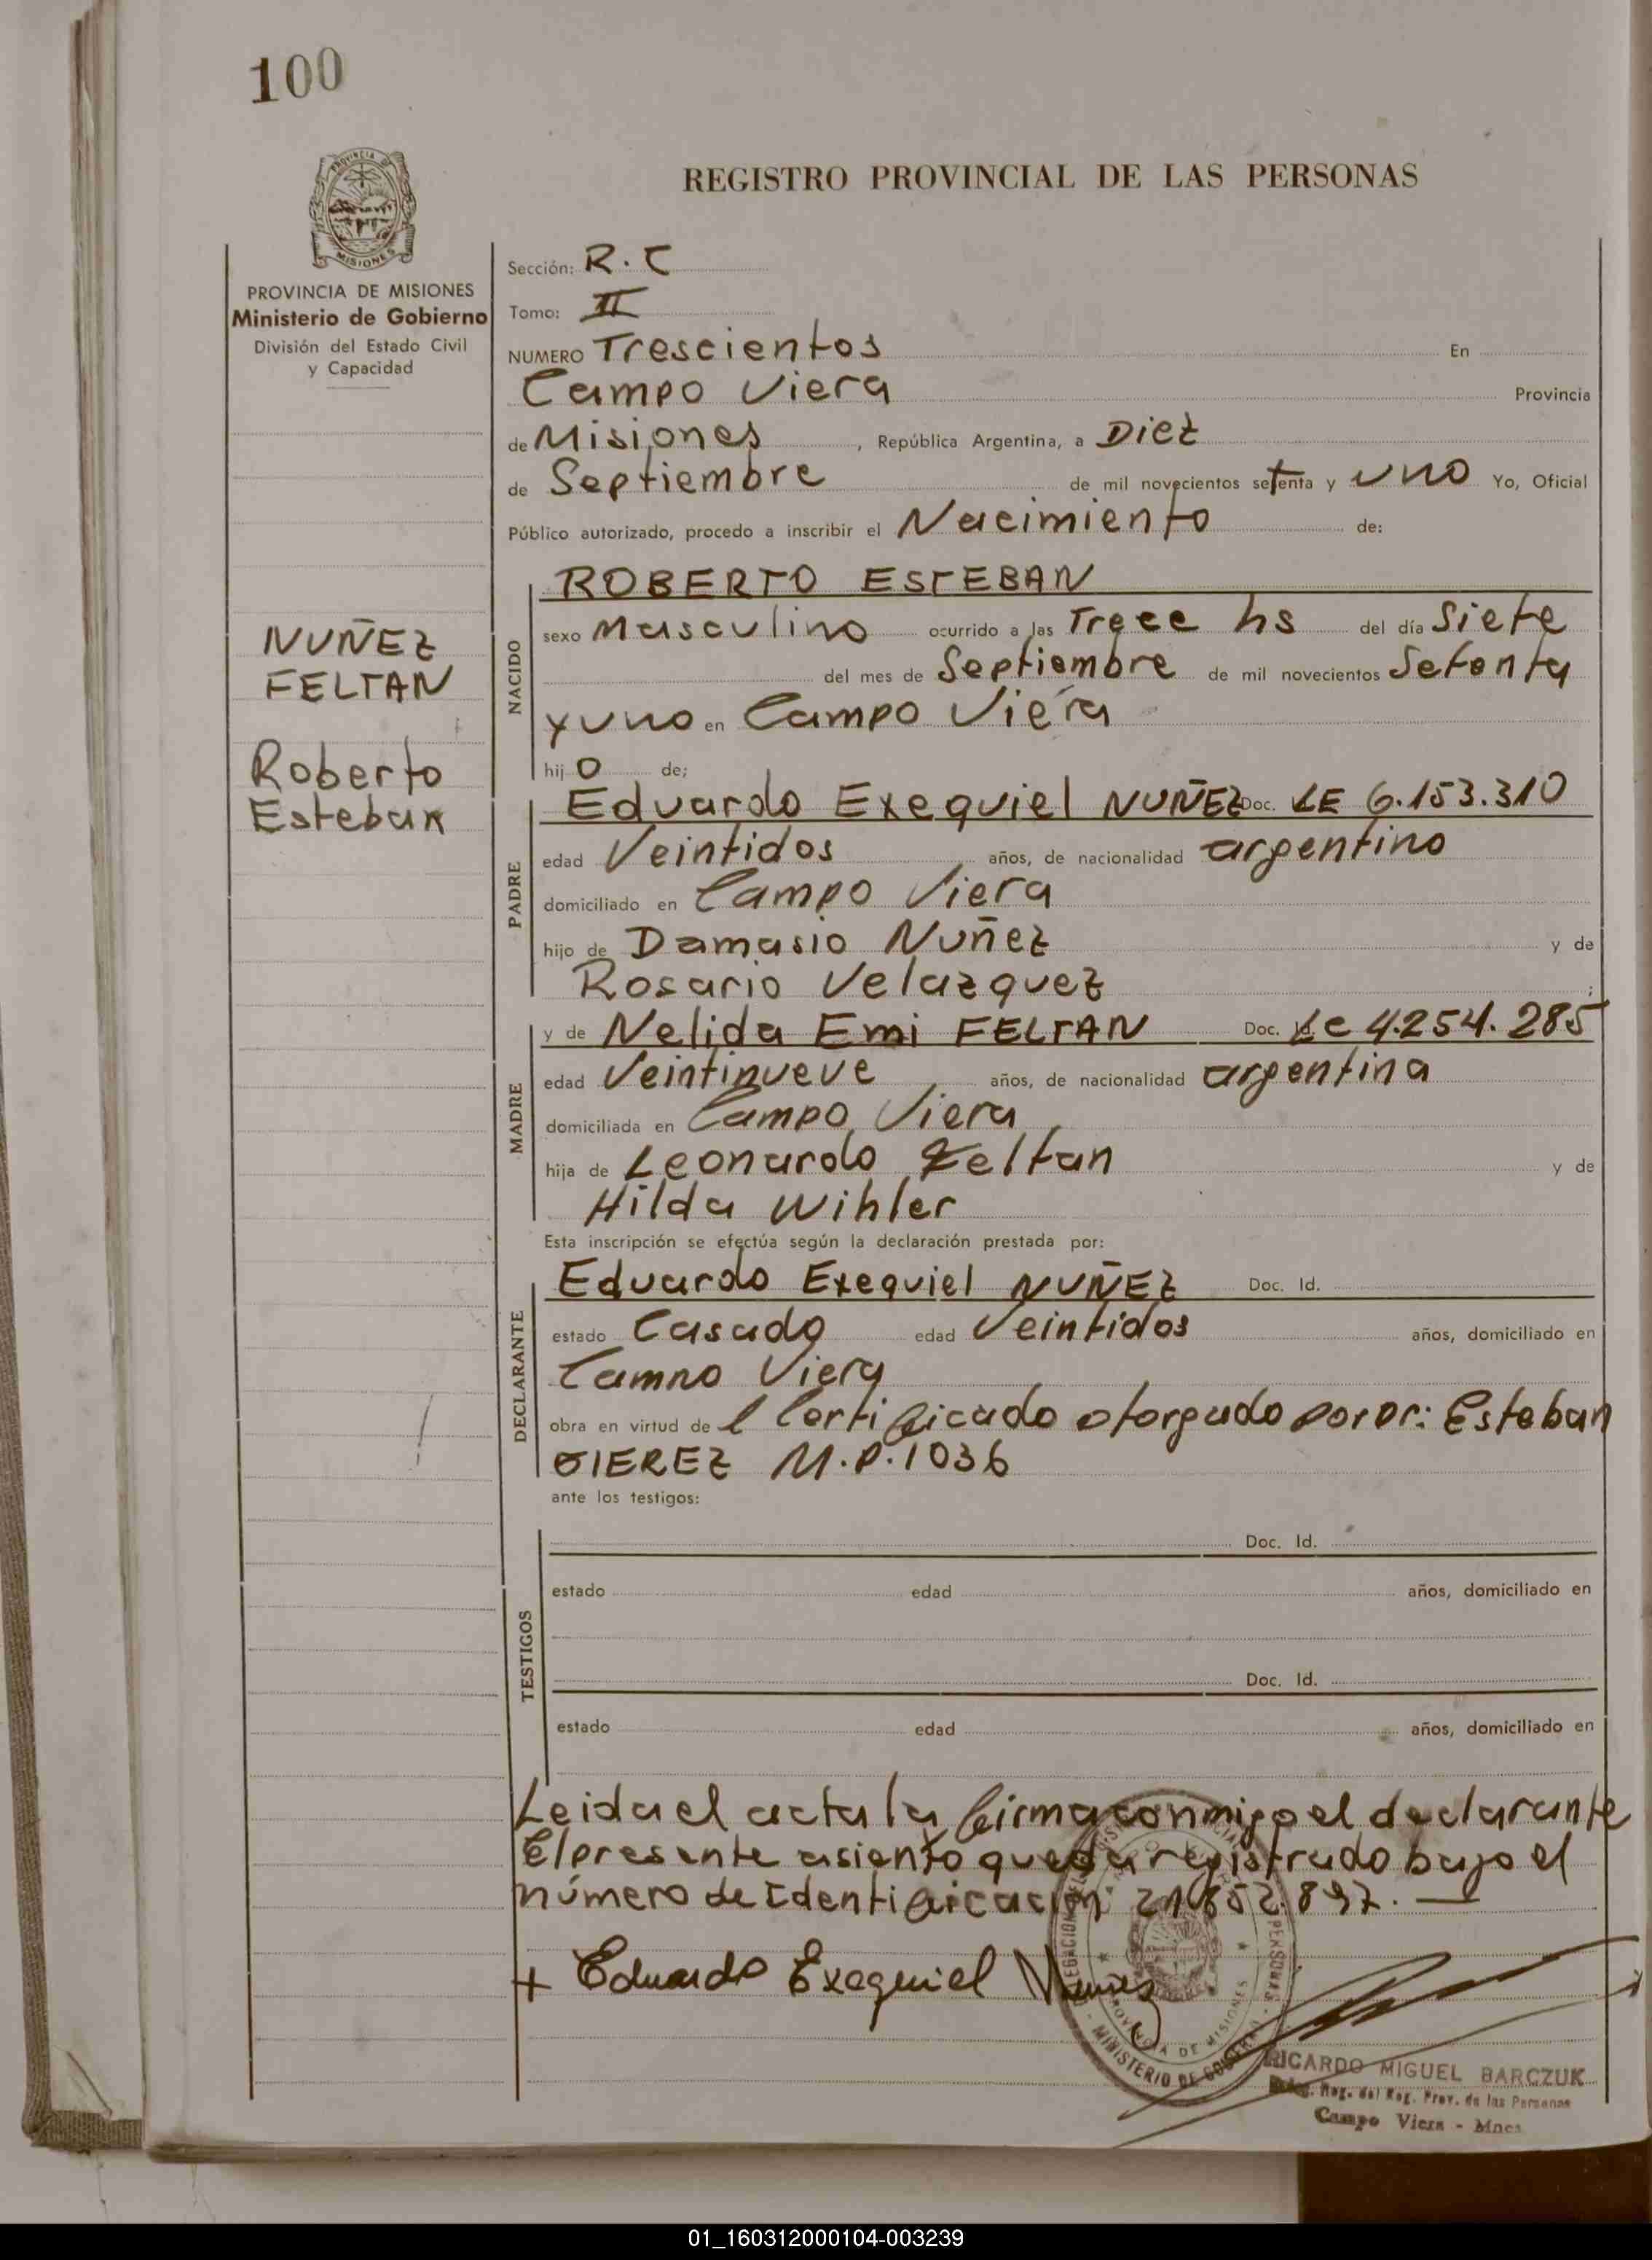 100
PROVINCIA DE
MISIONES
REGISTRO PROVINCIAL DE LAS PERSONAS
PROVINCIA DE MISIONES
Ministerio de Gobierno
División del Estado Civil
y Capacidad
NUÑEZ
FELTAN
Roberto
Esteban
Sección: R.C
Tomo: II
NUMERO Trescientos En
Campo Viera Provincia
de Misiones, República Argentina, a Diez
de Septiembre de mil novecientos setenta y uno Yo, Oficial
Público autorizado, procedo a inscribir el Nacimiento de:
NACIDO
ROBERTO ESTEBAN
sexo Masculino ocurrido a las Trece hs del día Siete
del mes de Septiembre de mil novecientos Setenta
y uno en Campo Viera
hij o de;
PADRE
Eduardo Exequiel NUÑEZ Doc. LE 6.153.310
edad Veintidos años, de nacionalidad argentino
domiciliado en Campo Viera
hijo de Damasio Nuñez y de
Rosario Velazquez ;
MADRE
y de Nelida Emi FELTAN Doc. Lc 4.254.285
edad Veintinueve años, de nacionalidad argentina
domiciliada en Campo Viera
hija de Leonardo Feltan y de
Hilda Wihler
Esta inscripción se efectúa según la declaración prestada por:
DECLARANTE
Eduardo Exequiel NUÑEZ Doc. Id.
estado Casado edad Veintidos años, domiciliado en
Campo Viera
obra en virtud de l Certificado otorgado por Dr: Esteban
GIEREZ M.P.1036
ante los testigos:
TESTIGOS
Doc. Id.
estado edad años, domiciliado en
Doc. Id.
estado edad años, domiciliado en
Leida el acta la firma conmigo el declarante
El presente asiento queda registrado bajo el
número de Identificación 21.852.897. —
+ Eduardo Exequiel Nuñez
PROVINCIA DE MISIONES
MINISTERIO DE GOBIERNO
RICARDO MIGUEL BARCZUK
Reg. del Reg. Prov. de las Personas
Campo Viera - Mnes
01_160312000104-003239